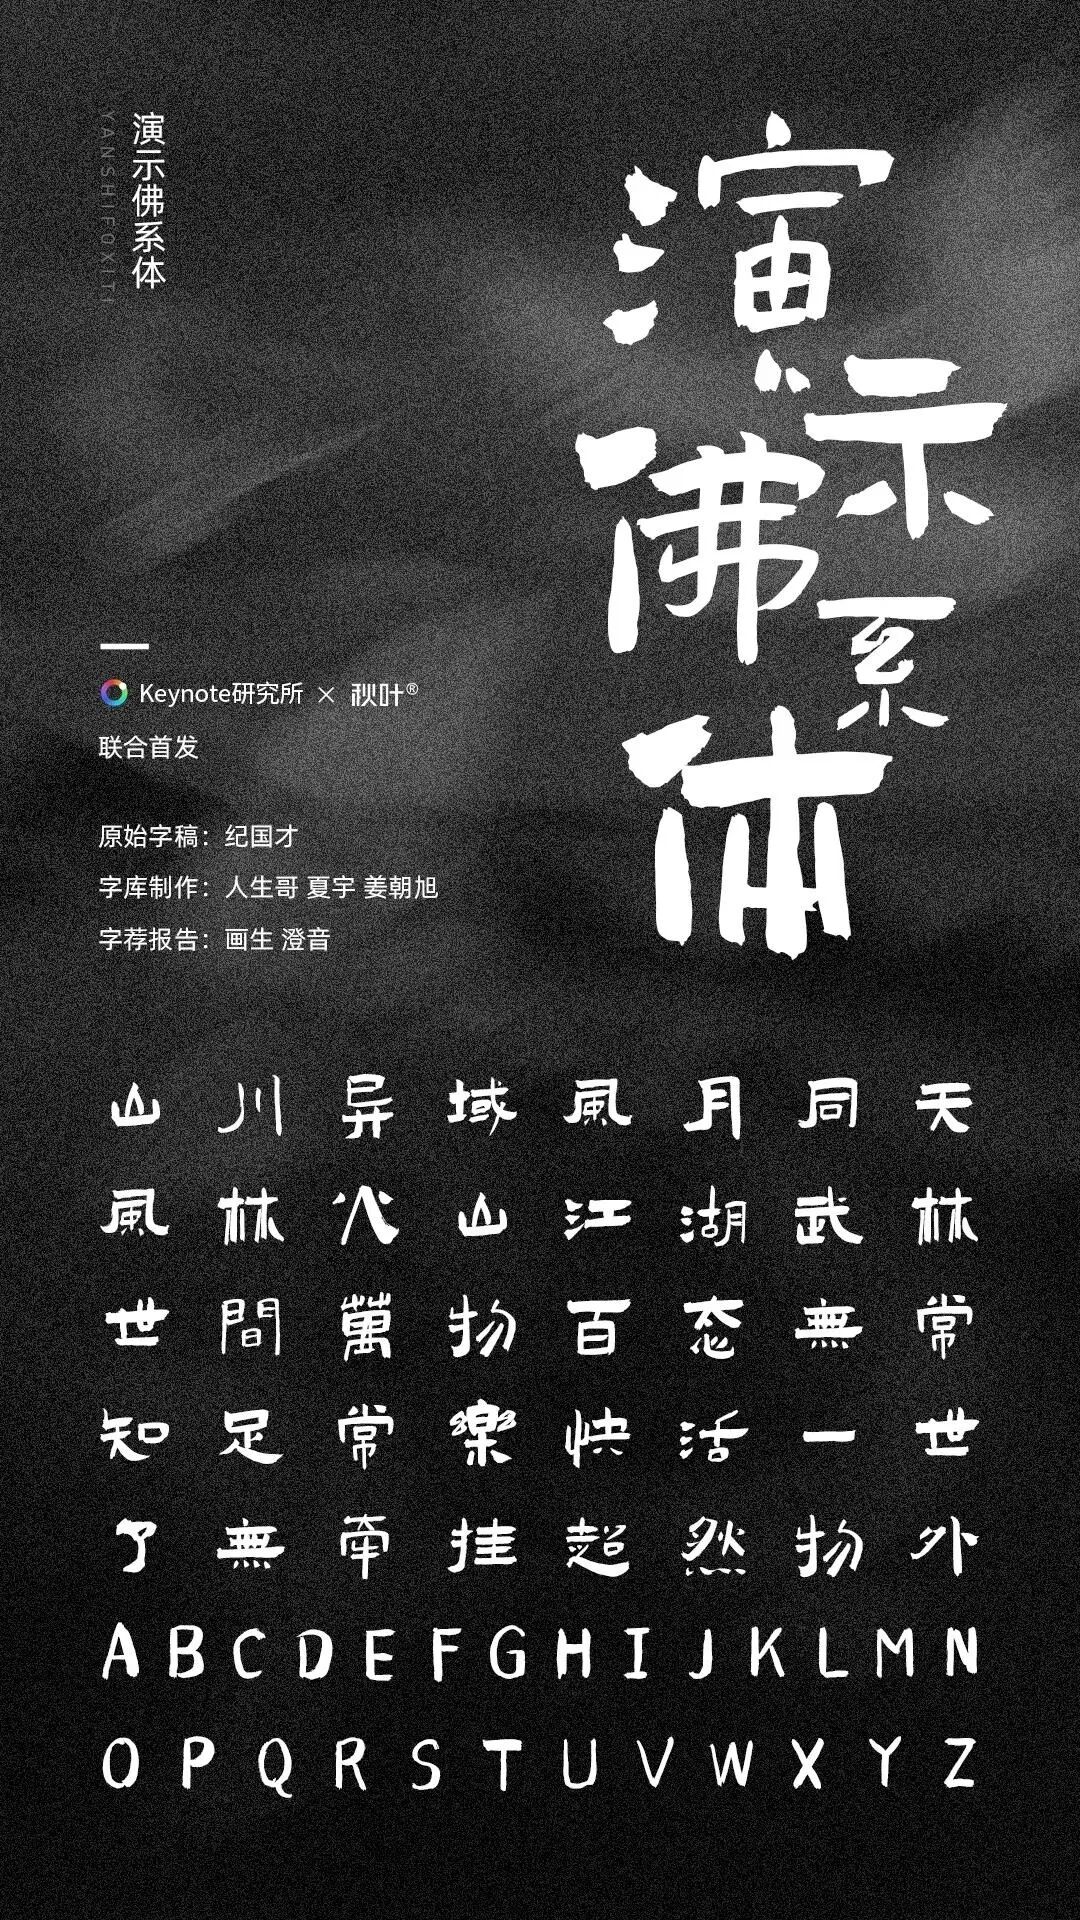 演示佛系体
YANSHIFOXITI
演示佛系体
Keynote研究所 × 秋叶®
联合首发
原始字稿：纪国才
字库制作：人生哥 夏宇 姜朝旭
字荐报告：画生 澄音
山川异域風月同天
風林火山江湖武林
世間萬物百态無常
知足常樂快活一世
了無牵挂超然物外
ABCDEFGHIJKLMN
OPQRSTUVWXYZ